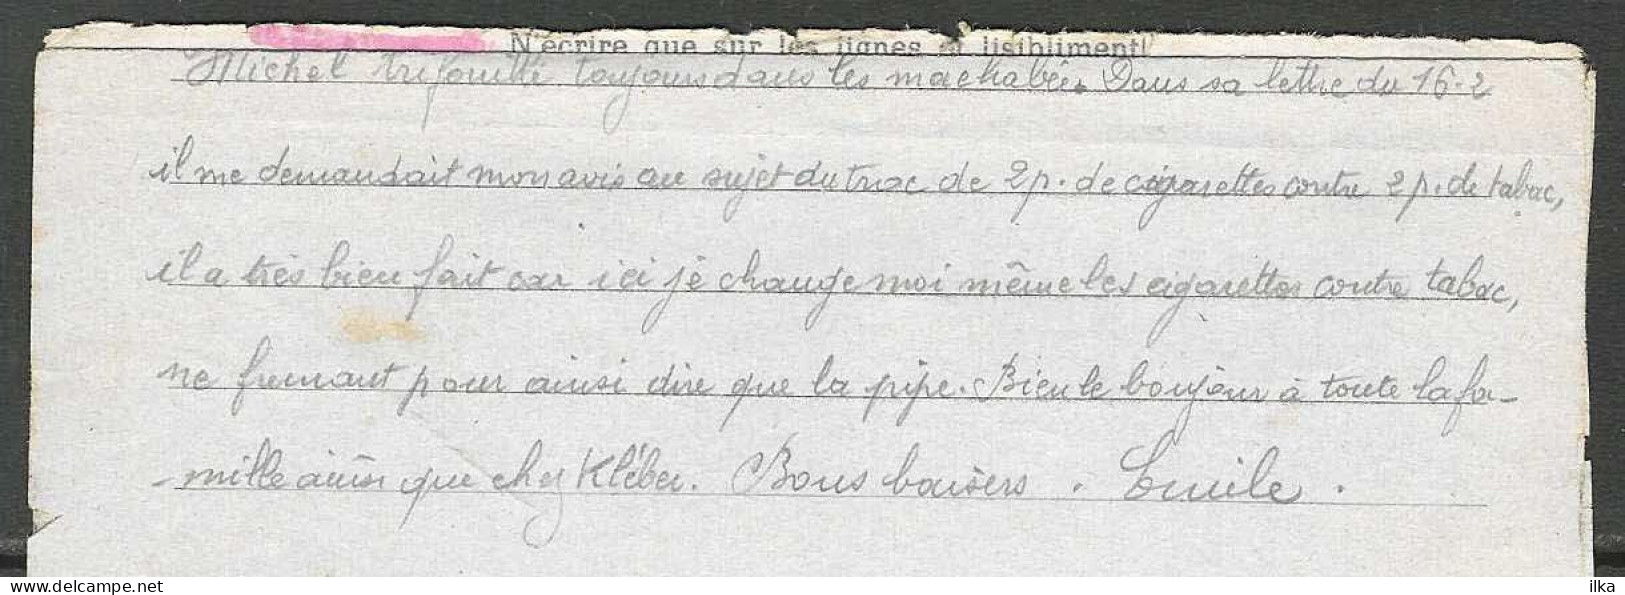 N'écrire que sur les lignes et lisibliment!
Michel trifouille toujours dans les machabées. Dans sa lettre du 16-2
il me demandait mon avis au sujet du troc de 2 p. de cigarettes contre 2 p. de tabac,
il a très bien fait car ici je change moi même les cigarettes contre tabac,
ne fumant pour ainsi dire que la pipe. Bien le bonjour à toute la fa-
-mille ainsi que chez Kléber. Bons baisers. Emile.
www.delcampe.net
ilka